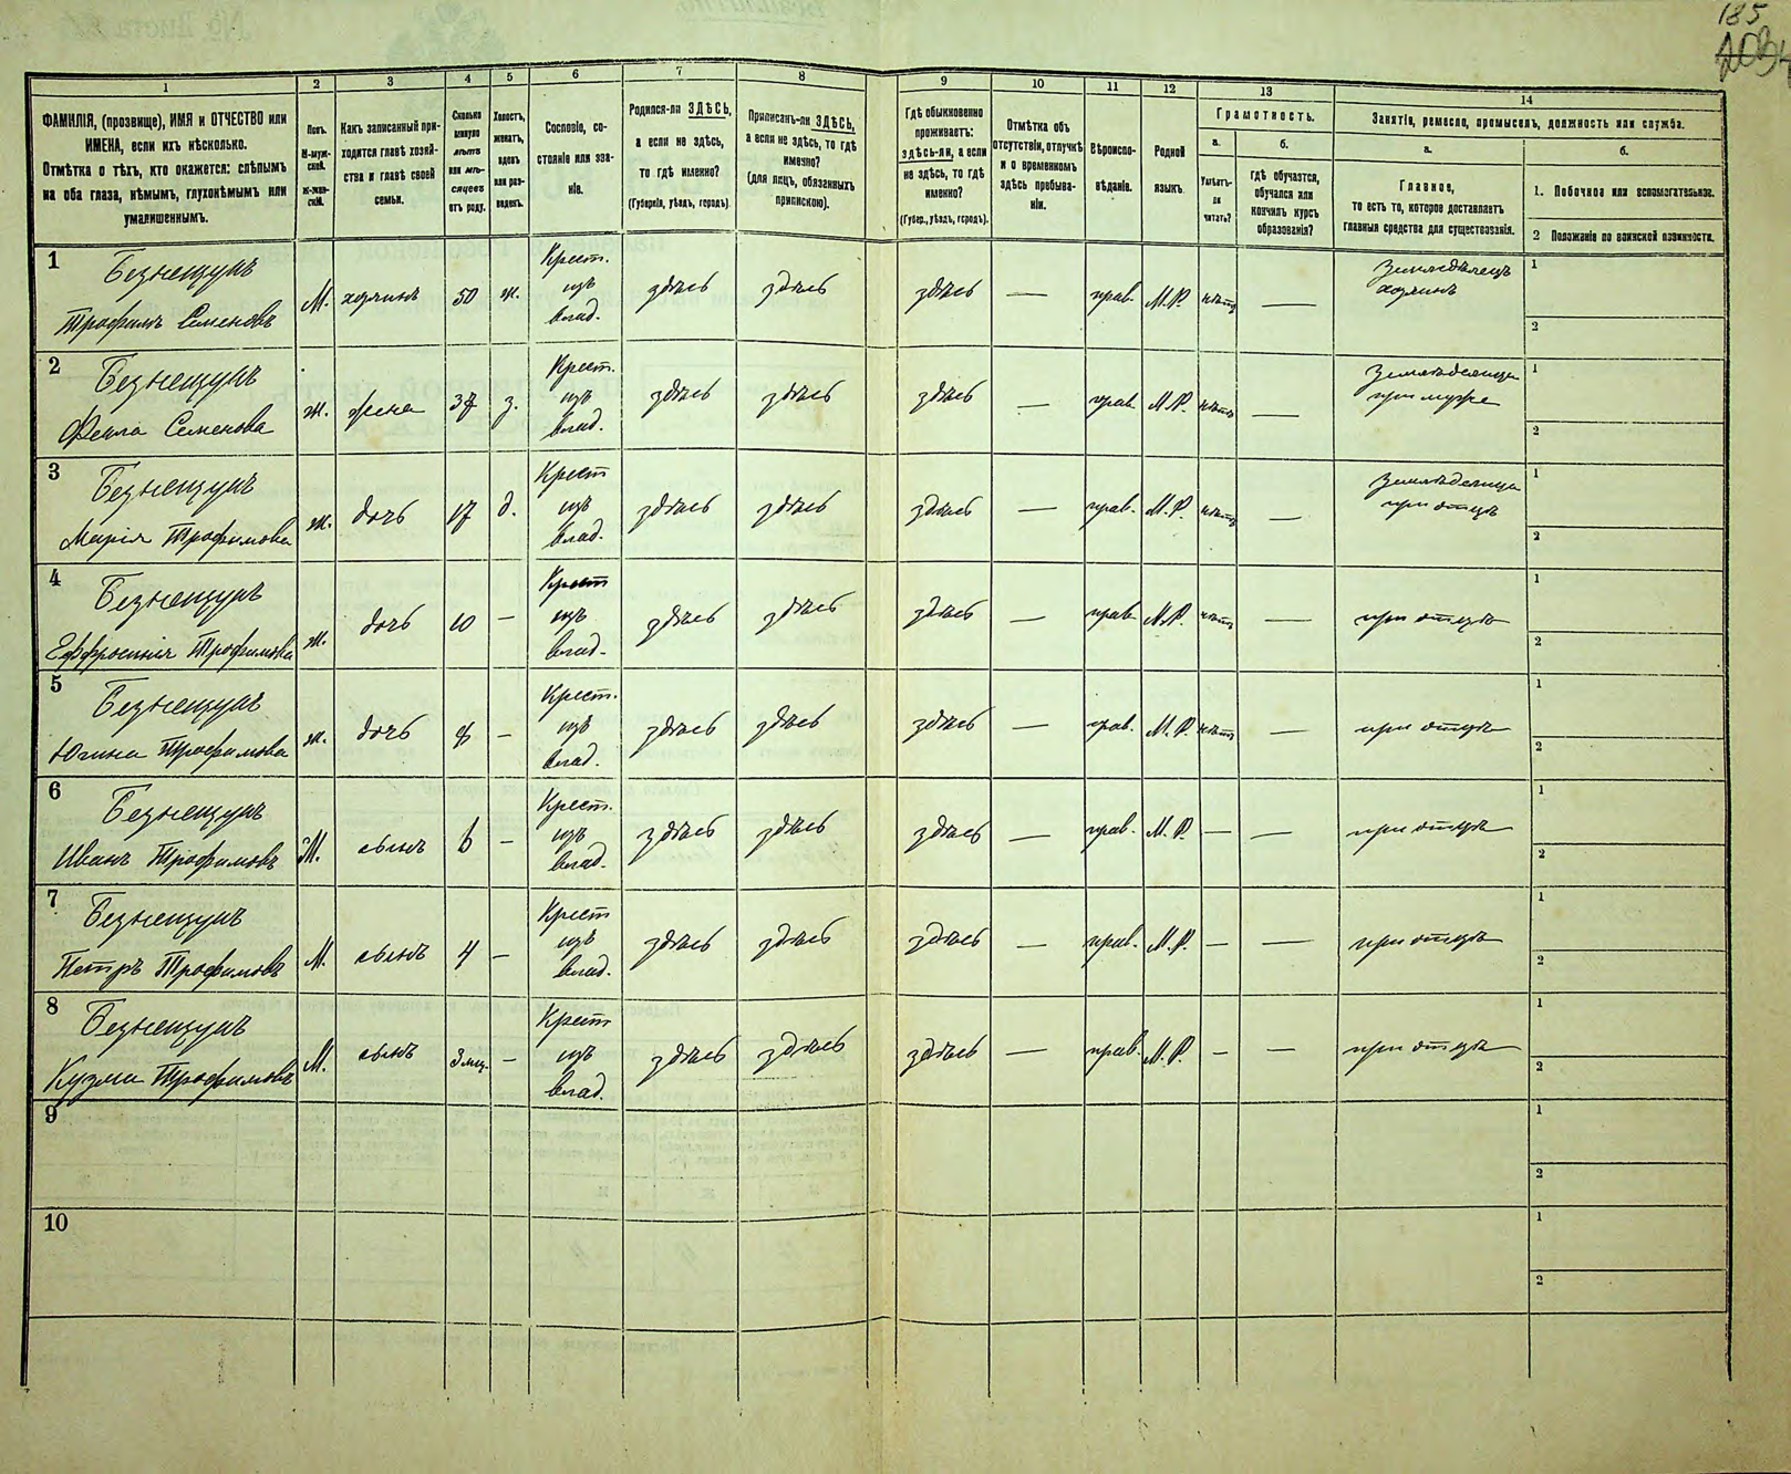 185
1
2
3
4
5
6
7
8
9
10
11
12
13
14
ФАМИЛІЯ, (прозвище), ИМЯ и ОТЧЕСТВО или
ИМЕНА, если ихъ нѣсколько.
Отмѣтка о тѣхъ, кто окажется: слѣпымъ
на оба глаза, нѣмымъ, глухонѣмымъ или
умалишеннымъ.
Полъ.
М-муж-
ской.
Ж-жен-
скій.
Какъ записанный при-
ходится главѣ хозяй-
ства и главѣ своей
семьи.
Сколько
минуло
лѣтъ
или мѣ-
сяцевъ
отъ роду.
Холостъ,
женатъ,
вдовъ
или раз-
веденъ.
Сословіе, со-
стояніе или зва-
ніе.
Родился-ли ЗДѢСЬ,
а если не здѣсь,
то гдѣ именно?
(Губернія, уѣздъ, городъ)
Приписанъ-ли ЗДѢСЬ,
а если не здѣсь, то гдѣ
именно?
(для лицъ, обязанныхъ
припискою).
Гдѣ обыкновенно
проживаетъ:
здѣсь-ли, а если
не здѣсь, то гдѣ
именно?
(Губер., уѣздъ, городъ).
Отмѣтка объ
отсутствіи, отлучкѣ
и о временномъ
здѣсь пребыва-
ніи.
Вѣроиспо-
вѣданіе.
Родной
языкъ.
Грамотность.
а.
Умѣетъ-
ли
читать?
б.
гдѣ обучается,
обучался или
кончилъ курсъ
образованія?
Занятіе, ремесло, промыселъ, должность или служба.
а.
Главное,
то есть то, которое доставляетъ
главныя средства для существованія.
б.
1. Побочное или вспомогательное.
2 Положеніе по воинской повинности.
1 Безнещумъ
Трофимъ Семеновъ
М. хозяинъ 50 ж.
Крест.
изъ
влад.
здѣсь здѣсь здѣсь — прав. М.Р. нѣтъ —
Земледѣлецъ
хозяинъ
1
2
2 Безнещумъ
Фекла Семенова
ж. жена 37 з.
Крест.
изъ
влад.
здѣсь здѣсь здѣсь — прав. М.Р. нѣтъ —
Земледелица
при мужѣ
1
2
3 Безнещумъ
Марія Трофимова
ж. дочь 17 д.
Крест
изъ
влад.
здѣсь здѣсь здѣсь — прав. М.Р. нѣтъ —
Земледелица
при отцѣ
1
2
4 Безнещумъ
Ефросинія Трофимова
ж. дочь 10 —
Крест
изъ
влад.
здѣсь здѣсь здѣсь — прав. М.Р. нѣтъ —
при отцѣ
1
2
5 Безнещумъ
Югина Трофимова
ж. дочь 8 —
Крест.
изъ
влад.
здѣсь здѣсь здѣсь — прав. М.Р. нѣтъ —
при отцѣ
1
2
6 Безнещумъ
Иванъ Трофимовъ
М. сынъ 6 —
Крест.
изъ
влад.
здѣсь здѣсь здѣсь — прав. М.Р. — —
при отцѣ
1
2
7 Безнещумъ
Петръ Трофимовъ
М. сынъ 4 —
Крест
изъ
влад.
здѣсь здѣсь здѣсь — прав. М.Р. — —
при отцѣ
1
2
8 Безнещумъ
Кузма Трофимовъ
М. сынъ 3 мц. —
Крест
изъ
влад.
здѣсь здѣсь здѣсь — прав. М.Р. — —
при отцѣ
1
2
9
1
2
10
1
2